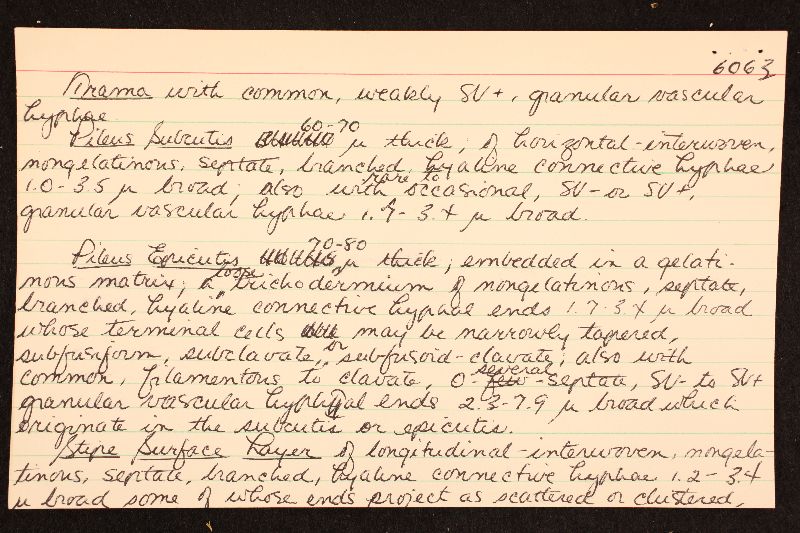 6063
Trama with common, weakly SV+, granular vascular
hyphae.
Pileus Subcutis 60-70 μ thick; of horizontal-interwoven,
nongelatinous, septate, branched, hyaline connective hyphae
1.0-3.5 μ broad; also with rare to occasional, SV- or SV+,
granular vascular hyphae 1.7-3.4 μ broad.
Pileus Epicutis 70-80 μ thick; embedded in a gelati-
nous matrix; a loose trichodermium of nongelatinous, septate,
branched, hyaline connective hyphal ends 1.7-3.4 μ broad
whose terminal cells may be narrowly tapered,
subfusiform, subclavate, or subfusoid-clavate; also with
common, filamentous to clavate, 0-several-septate, SV- to SV+
granular vascular hyphal ends 2.3-7.9 μ broad which
originate in the subcutis or epicutis.
Stipe Surface Layer of longitudinal-interwoven, nongela-
tinous, septate, branched, hyaline connective hyphae 1.2-3.4
μ broad some of whose ends project as scattered or clustered,